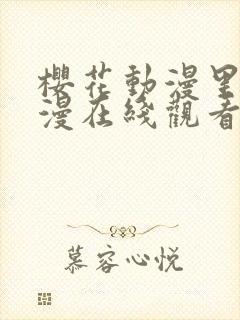 櫻花動漫里
漫在綫觀看
慕容心悦